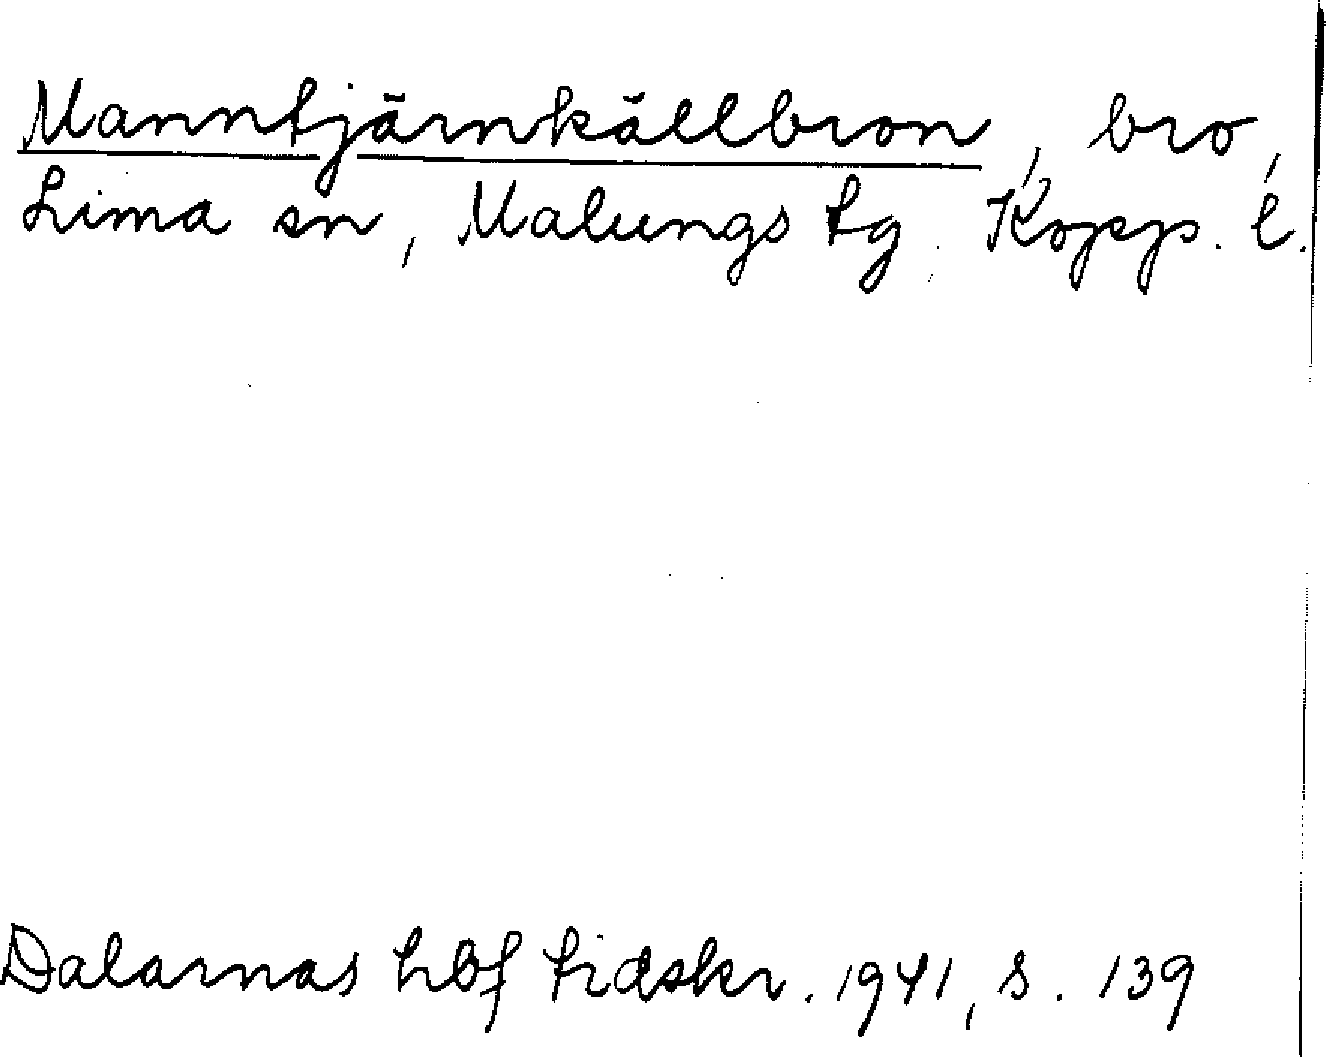 Manntjärnkällbron, bro,
Lima sn, Malungs tg. Kopp. l.
Dalarnas hbf tidskr. 1941, s. 139